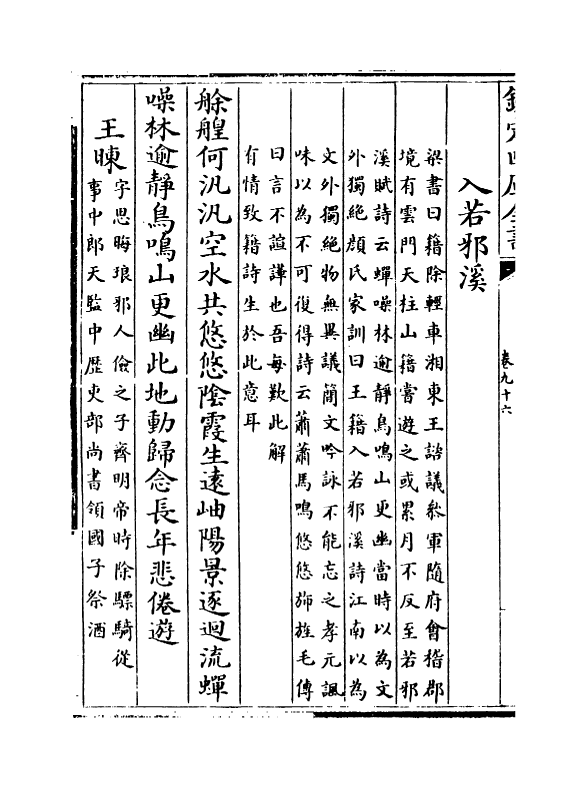 欽定四庫全書
卷九十六
入若邪溪
梁書曰籍除輕車湘東王諮議叅軍隨府會稽郡
境有雲門天柱山籍嘗遊之或累月不反至若邪
溪賦詩云蟬噪林逾静鳥鳴山更幽當時以為文
外獨絶顔氏家訓曰王籍入若邪溪詩江南以為
文外獨絶物無異議簡文吟詠不能忘之孝元諷
味以為不可復得詩云蕭蕭馬鳴悠悠斾旌毛傳
曰言不諠譁也吾每歎此解
有情致籍詩生於此意耳
艅艎何汎汎空水共悠悠隂霞生逺岫陽景逐迴流蟬
噪林逾静鳥鳴山更幽此地動歸念長年悲倦遊
王暕
字思晦琅邪人儉之子齊明帝時除驃騎從
事中郎天監中歴吏部尚書領國子祭酒